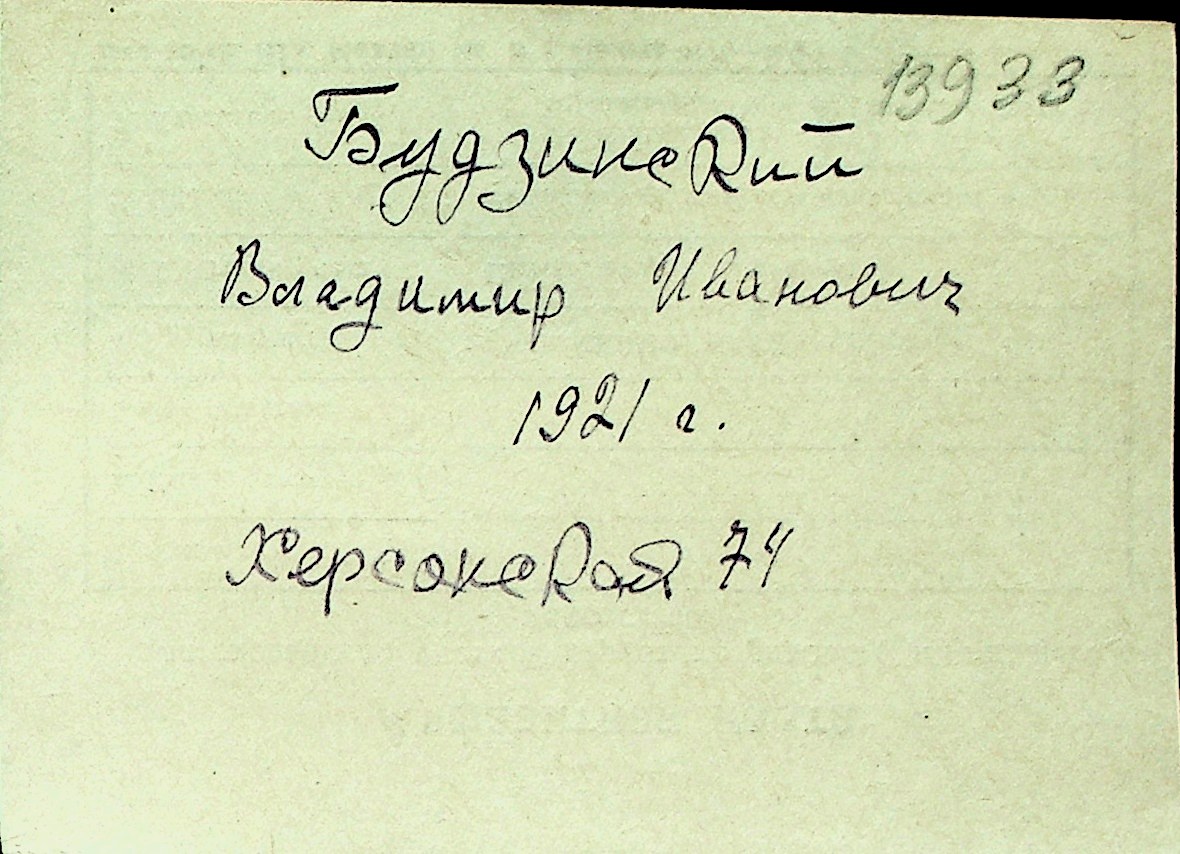 13933
Будзинский
Владимир Иванович
1921 г.
Херсонская 74